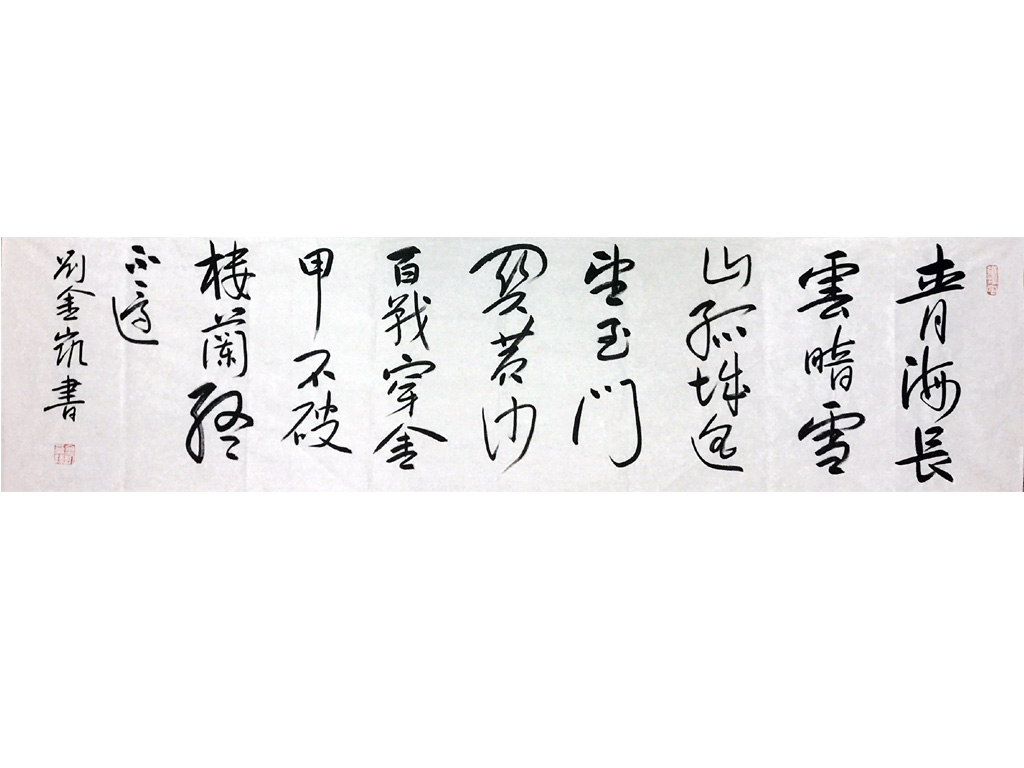 青海長
雲暗雪
山孤城遙
望玉門
關黄沙
百戰穿金
甲不破
樓蘭終
不還
劉金凱書